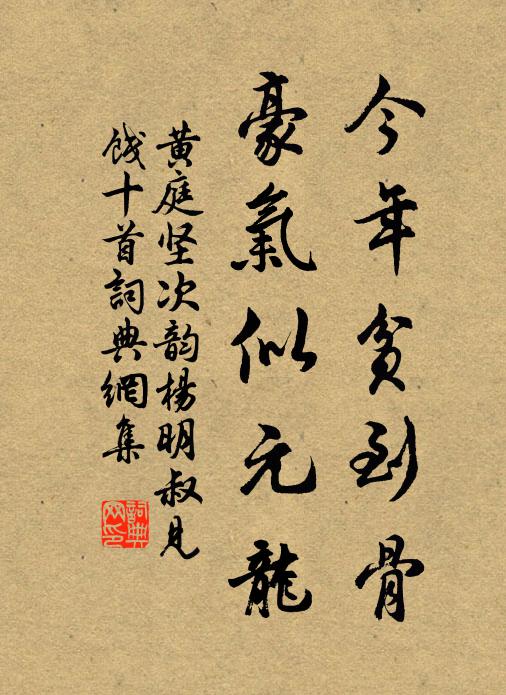 今年貧到骨
豪氣似元龍
黄庭坚次韵楊明叔見
餞十首詞典網集
詞典
网印